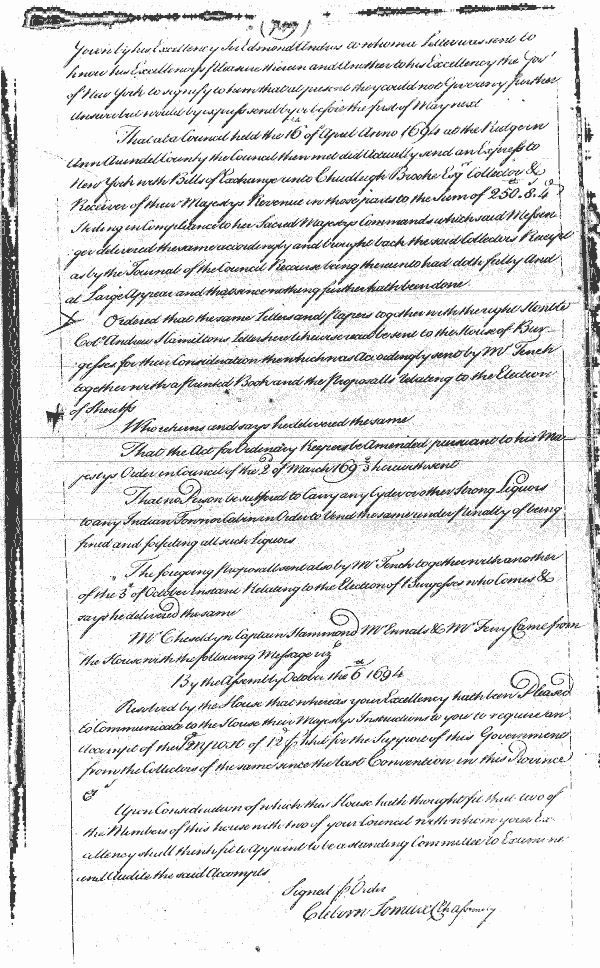 (707)
Given by his Excellency Sr Edmond Andros to whome a Letter was sent to
know his Excellencys pleasure therein and Another to his Excellency the Govr
of New York to signify to him that at present they could not Give any further
Answer but would by express send by or before the first of May next
That at a Council held the 16th of April Anno 1694 at the Ridge in
Ann Arundel County the Council then met did Actually send an Express to
New York with Bills of Exchange unto Chudleigh Brooke Esqr Collector &
Receiver of their Majestys Revenue in those parts to the Sum of 250. 8. 4
Sterling in Compliance to her Sacred Majestys Commands which said Messen
ger delivered the same accordingly and brought back the said Collectors Receipt
as by the Journal of the Council Recourse being thereunto had doth fully And
at Large Appear and thasence nothing further hath been done
Ordered that the same Letters and papers together with the right Honble
Colo Andrew Hamiltons Letter herewith read be sent to the House of Bur-
gesses for their Consideration the which was Accordingly sent by Mr Tench
together with a Printed Book and the Proposalls relating to the Election
of Sheriffs
Who returns and says he delivered the same
That the Act for Ordinary Keepers be Amended pursuant to his Ma
jestys Order in Council of the 2d of March 1693 herewith sent
That no Person be suffered to Carry any Cyder or other Strong Liquors
to any Indian Town or Cabin in Order to Vend the same under penalty of being
fined and forfeiting all such Liquors
The foregoing proposall sent also by Mr Tench together with another
of the 3d of October instant Relating to the Election of Burgesses who Comes &
says he delivered the same
Mr Cheseldyn Captain Hammond Mr Ennals & Mr Ferry Came from
the House with the following Message vizt
By the Assembly October the 6th 1694
Resolved by the House that whereas your Excellency hath been Pleased
to Communicate to the House their Majestys Instructions to you to require an
Accompt of the Impost of 12d p hhd for the Support of this Government
from the Collectors of the same since the last Convention in this Province
&c
Upon Consideration of which this House hath thought fit that two of
the Members of this house with two of your Council with whom your Ex-
cellency shall think fit to Appoint to be a standing Committee to Examine
and Audite the said Accompts
Signed p Order
Cleborn Lomax Cl Assembly